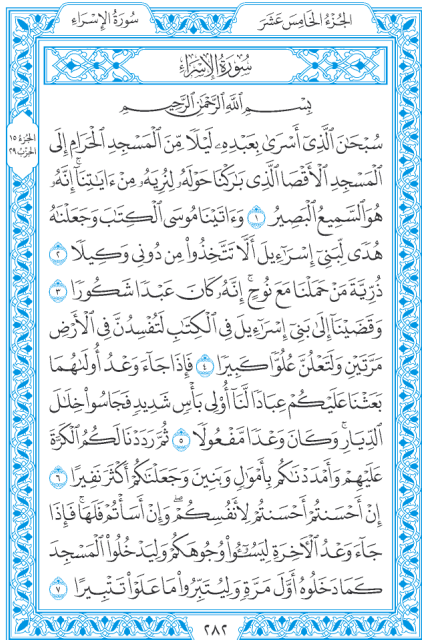 الجُزْءُ الخَامِسَ عَشَرَ
سُورَةُ الإِسْرَاءِ
سُورَةُ الإِسْرَاءِ
الجزء ١٥
الحزب ٢٩
بِسْمِ ٱللَّهِ ٱلرَّحْمَٰنِ ٱلرَّحِيمِ
سُبْحَٰنَ ٱلَّذِىٓ أَسْرَىٰ بِعَبْدِهِۦ لَيْلًا مِّنَ ٱلْمَسْجِدِ ٱلْحَرَامِ إِلَى
ٱلْمَسْجِدِ ٱلْأَقْصَا ٱلَّذِى بَٰرَكْنَا حَوْلَهُۥ لِنُرِيَهُۥ مِنْ ءَايَٰتِنَآ ۚ إِنَّهُۥ
هُوَ ٱلسَّمِيعُ ٱلْبَصِيرُ ١ وَءَاتَيْنَا مُوسَى ٱلْكِتَٰبَ وَجَعَلْنَٰهُ
هُدًى لِّبَنِىٓ إِسْرَٰٓءِيلَ أَلَّا تَتَّخِذُوا۟ مِن دُونِى وَكِيلًا ٢
ذُرِّيَّةَ مَنْ حَمَلْنَا مَعَ نُوحٍ ۚ إِنَّهُۥ كَانَ عَبْدًا شَكُورًا ٣
وَقَضَيْنَآ إِلَىٰ بَنِىٓ إِسْرَٰٓءِيلَ فِى ٱلْكِتَٰبِ لَتُفْسِدُنَّ فِى ٱلْأَرْضِ
مَرَّتَيْنِ وَلَتَعْلُنَّ عُلُوًّا كَبِيرًا ٤ فَإِذَا جَآءَ وَعْدُ أُولَىٰهُمَا
بَعَثْنَا عَلَيْكُمْ عِبَادًا لَّنَآ أُو۟لِى بَأْسٍ شَدِيدٍ فَجَاسُوا۟ خِلَٰلَ
ٱلدِّيَارِ ۚ وَكَانَ وَعْدًا مَّفْعُولًا ٥ ثُمَّ رَدَدْنَا لَكُمُ ٱلْكَرَّةَ
عَلَيْهِمْ وَأَمْدَدْنَٰكُم بِأَمْوَٰلٍ وَبَنِينَ وَجَعَلْنَٰكُمْ أَكْثَرَ نَفِيرًا ٦
إِنْ أَحْسَنتُمْ أَحْسَنتُمْ لِأَنفُسِكُمْ ۖ وَإِنْ أَسَأْتُمْ فَلَهَا ۚ فَإِذَا
جَآءَ وَعْدُ ٱلْءَاخِرَةِ لِيَسُۥٓـُٔوا۟ وُجُوهَكُمْ وَلِيَدْخُلُوا۟ ٱلْمَسْجِدَ
كَمَا دَخَلُوهُ أَوَّلَ مَرَّةٍ وَلِيُتَبِّرُوا۟ مَا عَلَوْا۟ تَتْبِيرًا ٧
٢٨٢